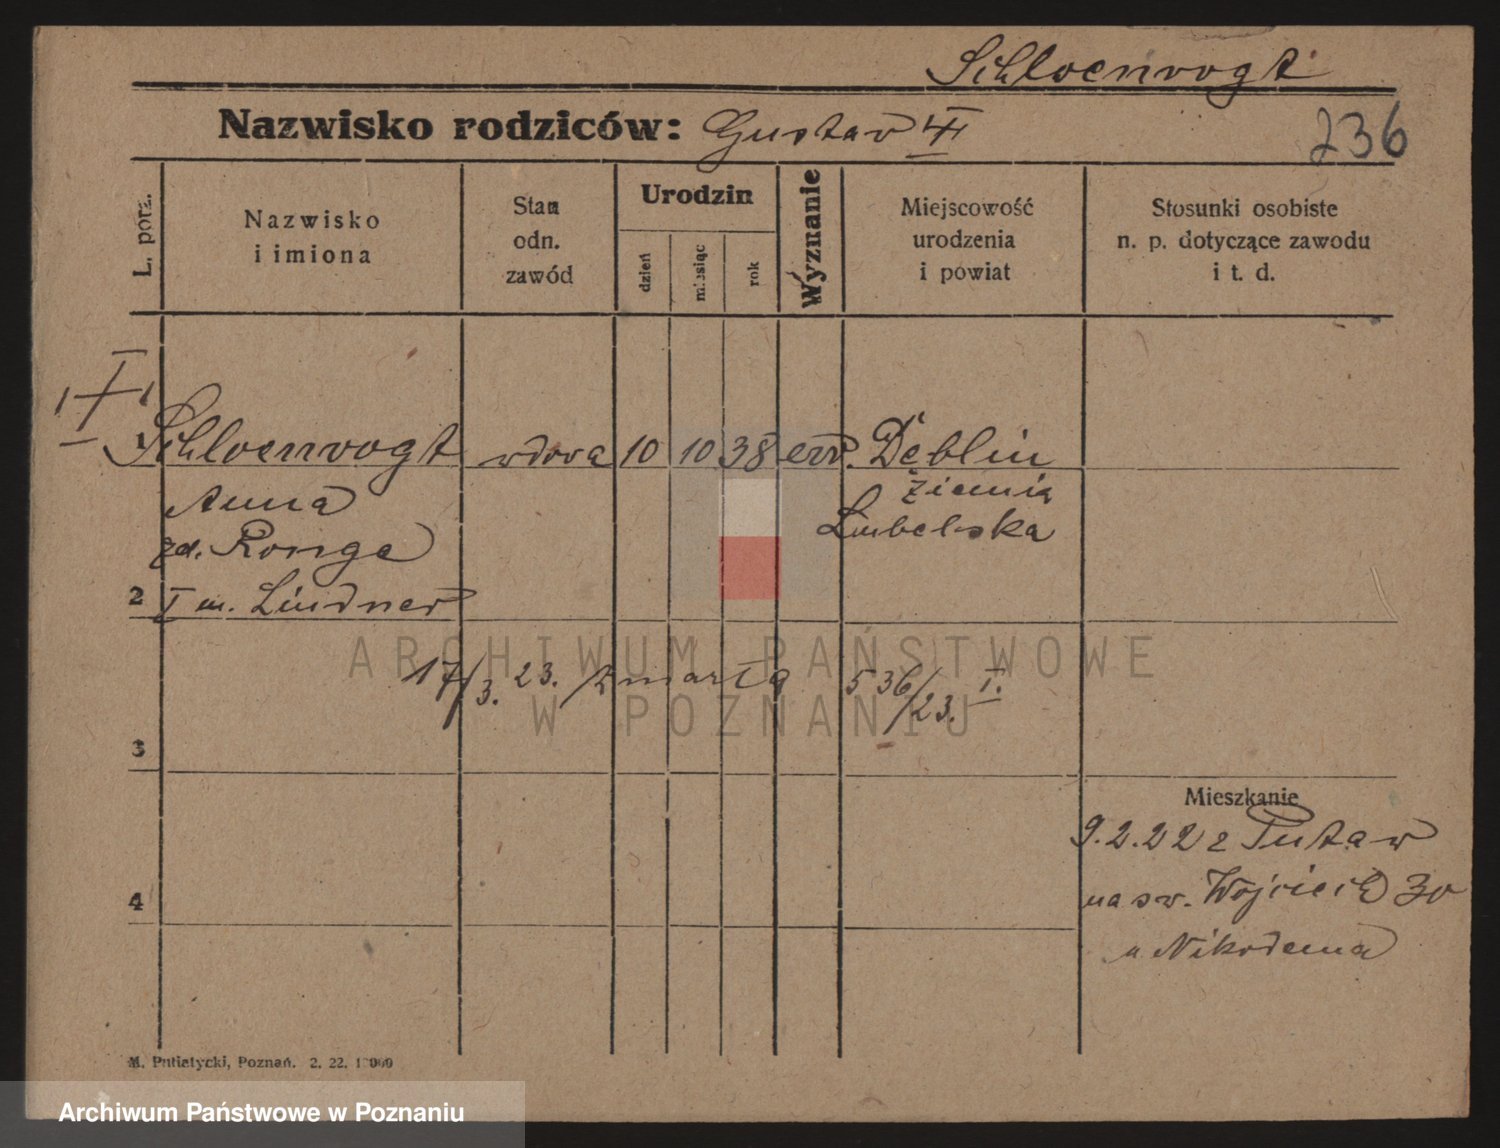 Schloenvogt
Nazwisko rodziców: Gustav
236
L. porz.
Nazwisko
i imiona
Stan
odn.
zawód
Urodzin
dzień
miesiąc
rok
Wyznanie
Miejscowość
urodzenia
i powiat
Stosunki osobiste
n. p. dotyczące zawodu
i t. d.
1 Schloenvogt wdowa 10 10 38 ew. Dęblin
Anna ziemia
zd. Ronge Lubelska
2 I m. Lindner
17/3. 23. zmarła 536/23. I.
3
Mieszkanie
9.2.22 z
na św. Wojciech 30
4
u Nikodema
M. Putiatycki, Poznań. 2. 22.
ARCHIWUM PAŃSTWOWE
W POZNANIU
Archiwum Państwowe w Poznaniu